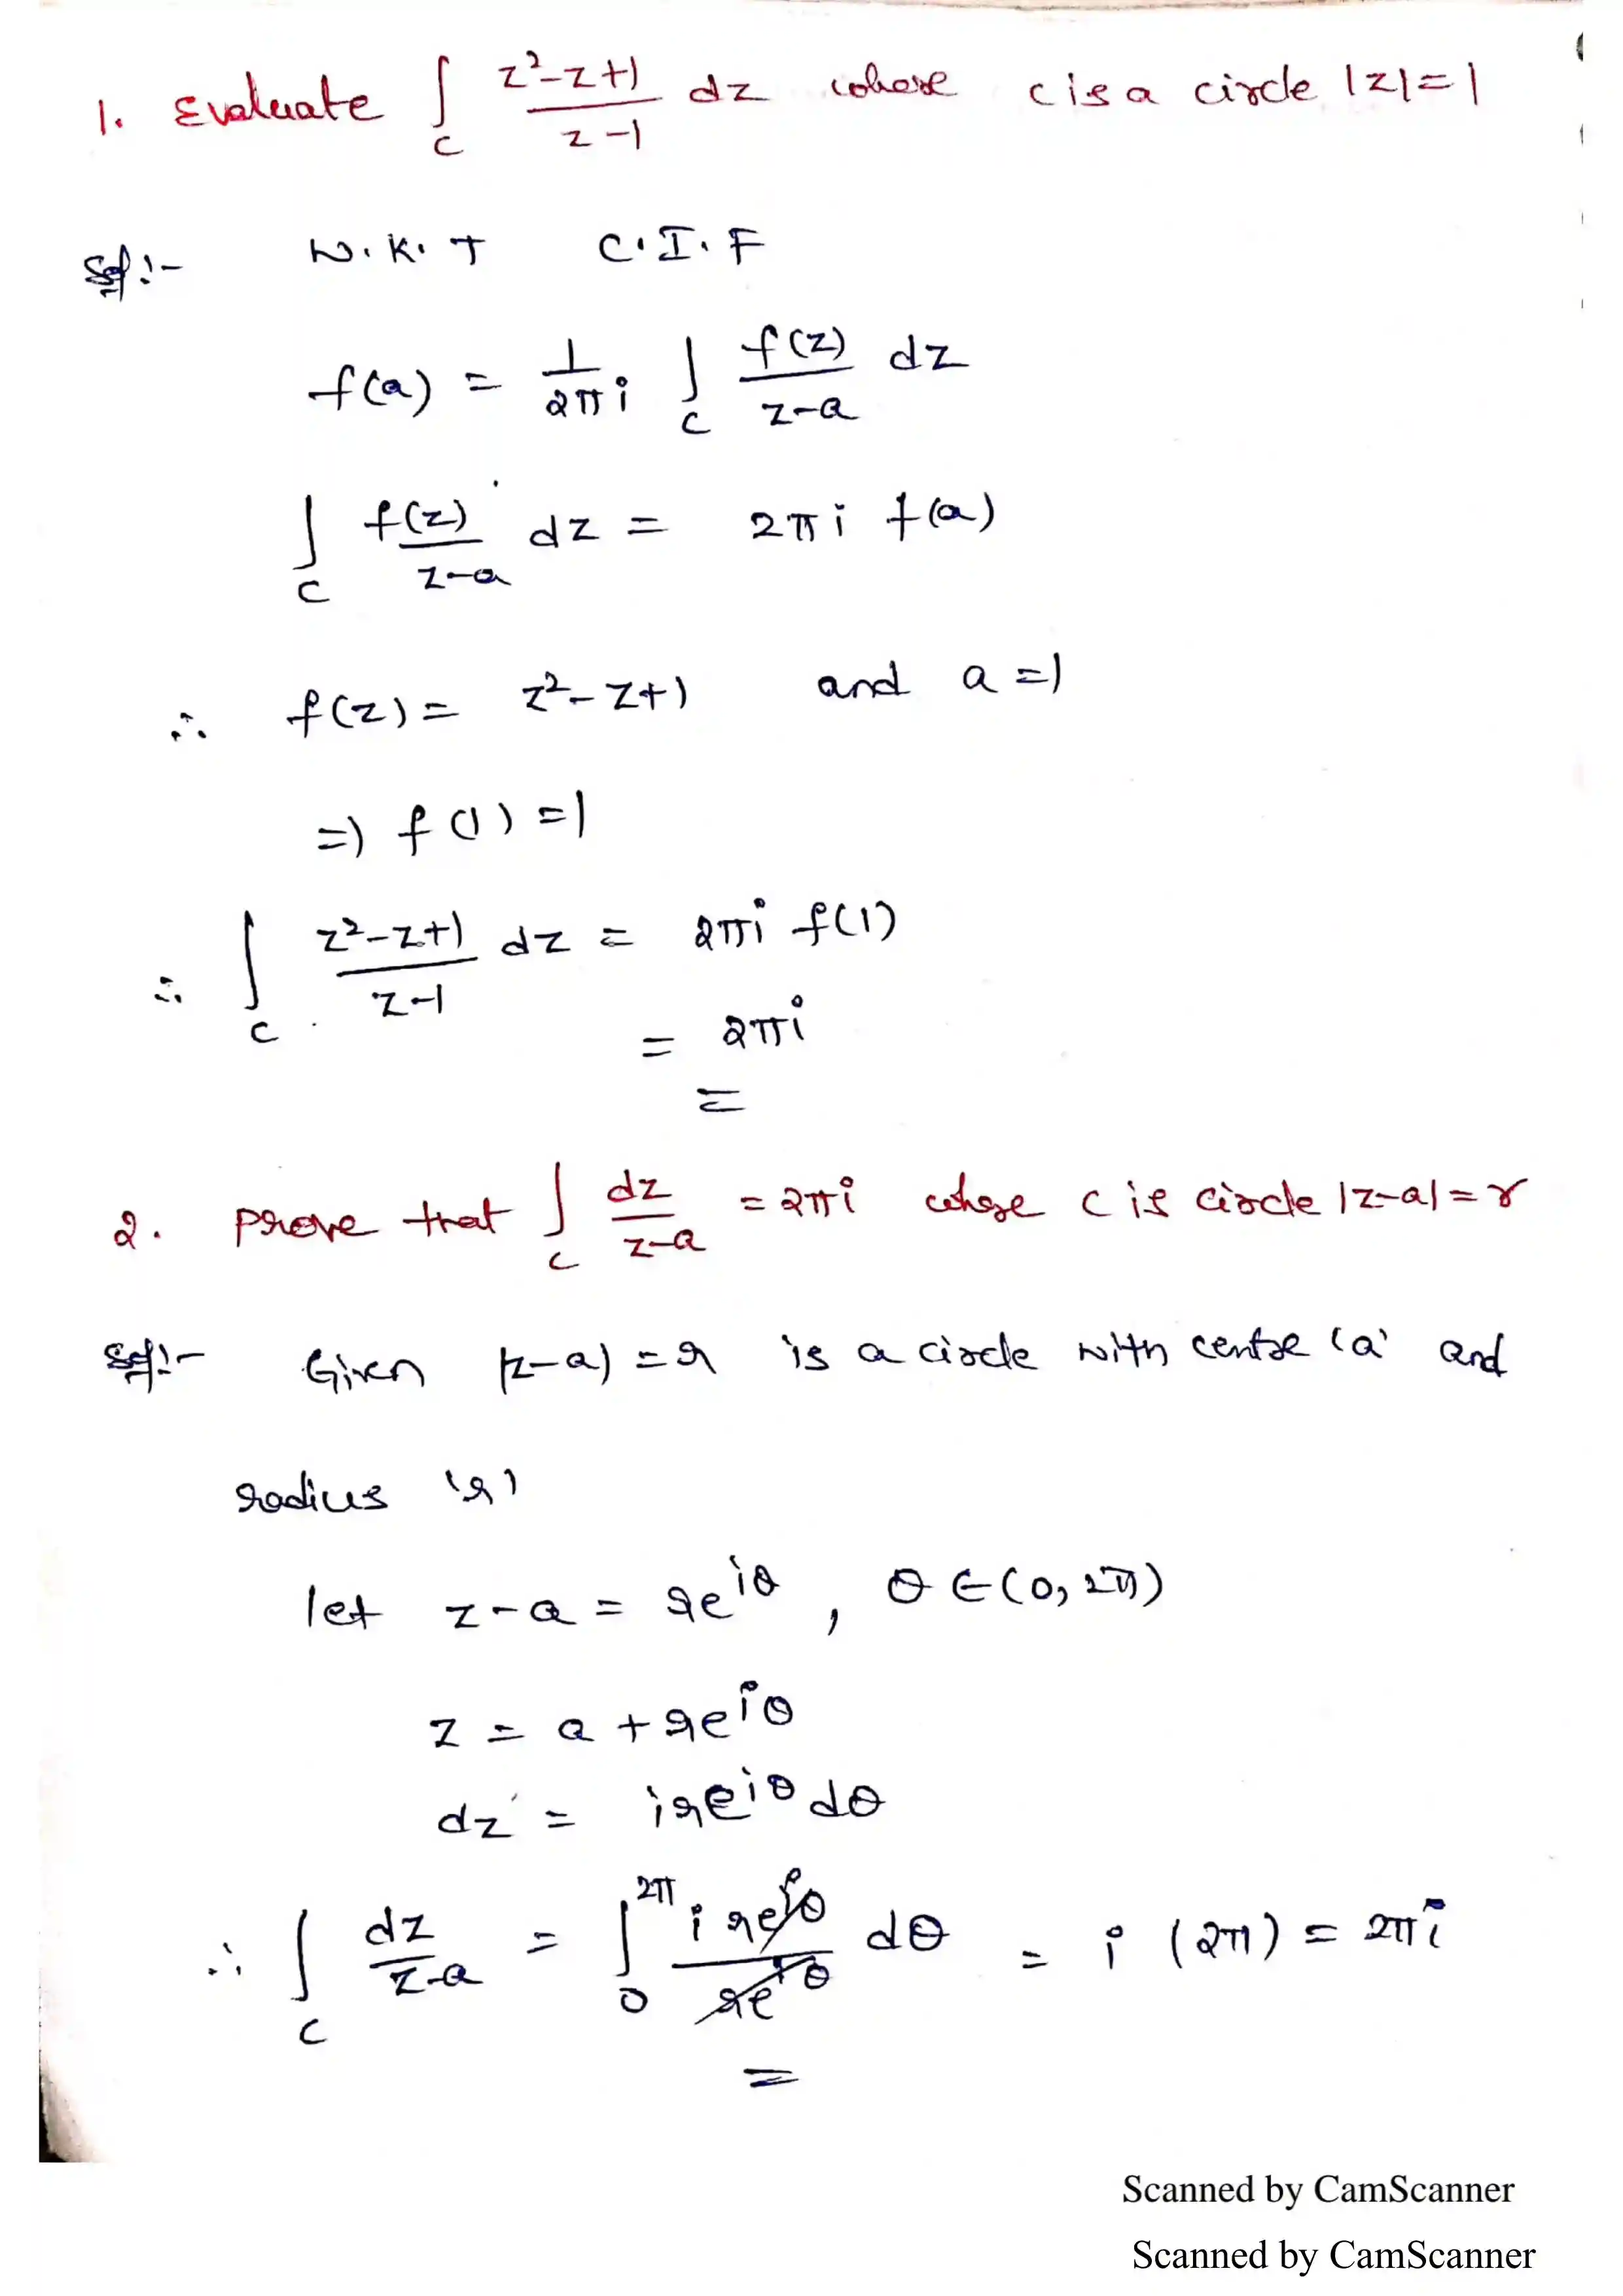 1. Evaluate ∫_C (z²-z+1)/(z-1) dz where c is a circle |z|=1
Sol:- W.K.T C.I.F
f(a) = 1/(2πi) ∫_C f(z)/(z-a) dz
∫_C f(z)/(z-a) dz = 2πi f(a)
∴ f(z) = z²-z+1 and a=1
=) f(1) = 1
∴ ∫_C (z²-z+1)/(z-1) dz = 2πi f(1)
= 2πi
=
2. Prove that ∫_C dz/(z-a) = 2πi where C is circle |z-a|=r
Sol:- Given |z-a)=r is a circle with centre 'a' and
radius 'r'
let z-a = re^{iθ}, θ∈(0,2π)
z = a+re^{iθ}
dz = ire^{iθ}dθ
∴ ∫_C dz/(z-a) = ∫_0^{2π} ire^{iθ}/re^{iθ} dθ = i(2π) = 2πi
=
Scanned by CamScanner
Scanned by CamScanner